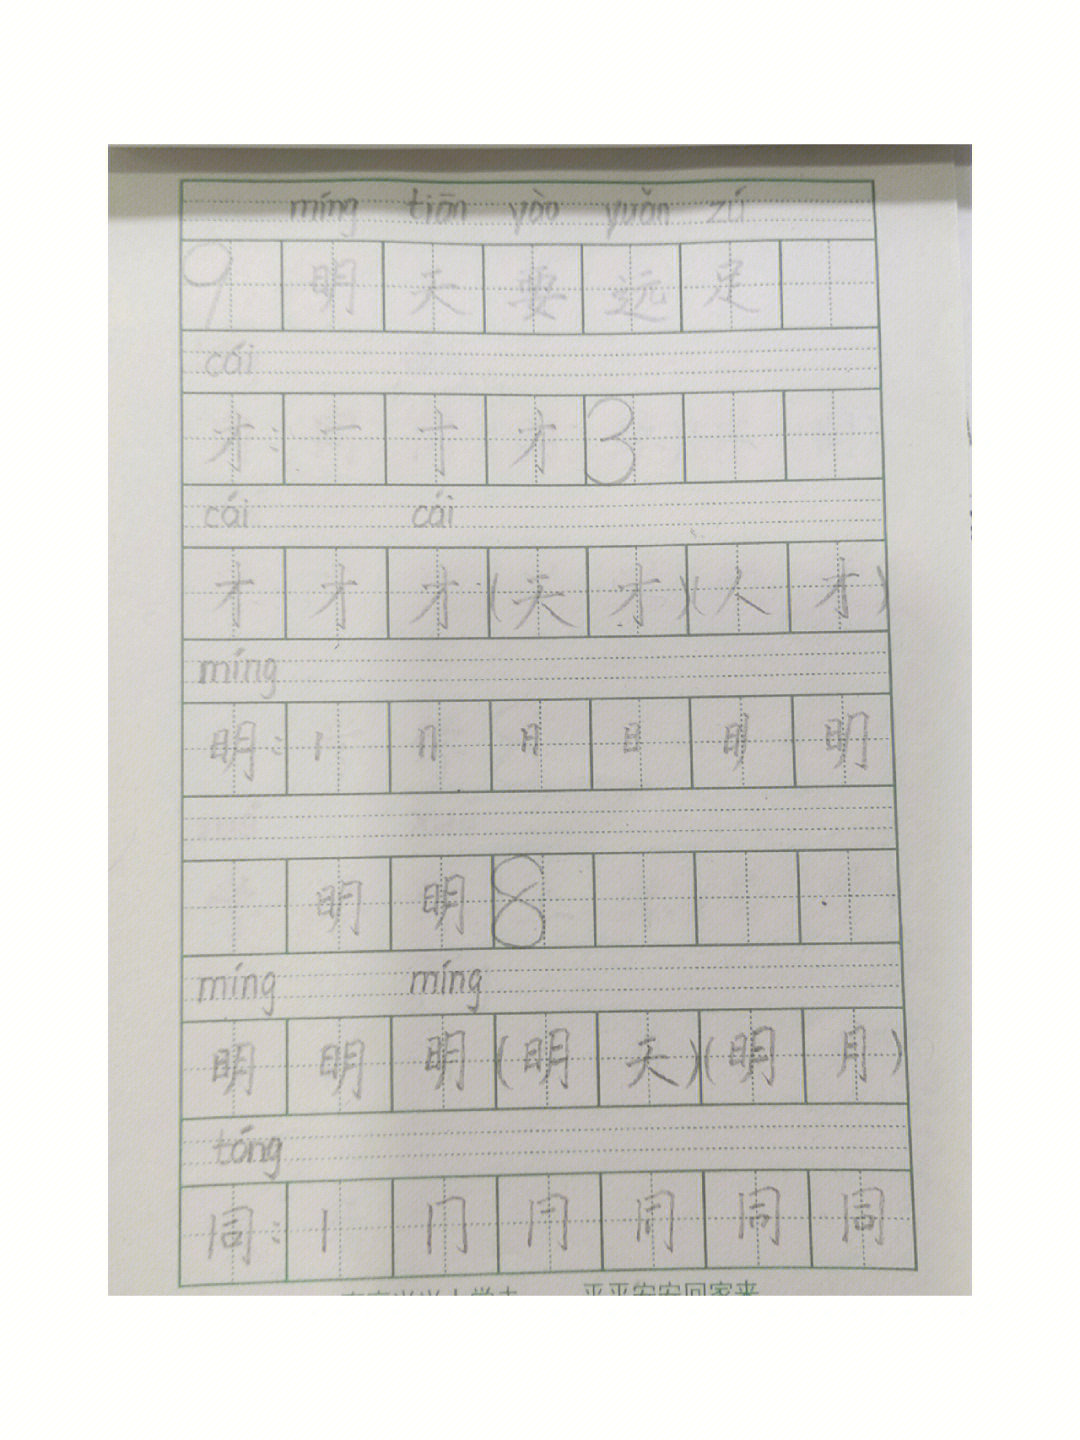 míng tiān yào yuǎn zú
9 明 天 要 远 足
cái
才: 一 十 才 3
cái cái
才 才 才 (天 才) (人 才)
míng
明: 丨 冂 日 日 明 明
明 明 8
míng míng
明 明 明 (明 天) (明 月)
tóng
同: 丨 冂 同 同
平平安安回家来